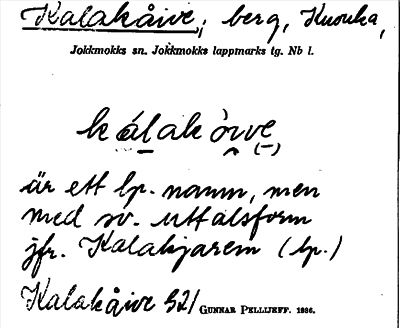 Kalakåive, berg, Kuouka,
Jokkmokks sn. Jokkmokks lappmarks tg. Nb l.
kálakòi̭vve
(–)
är ett lp. namn, men
med sv. uttalsform
jfr. Kalakjarem (lp.)
Kalakåive 521 GUNNAR PELLIJEFF. 1936.